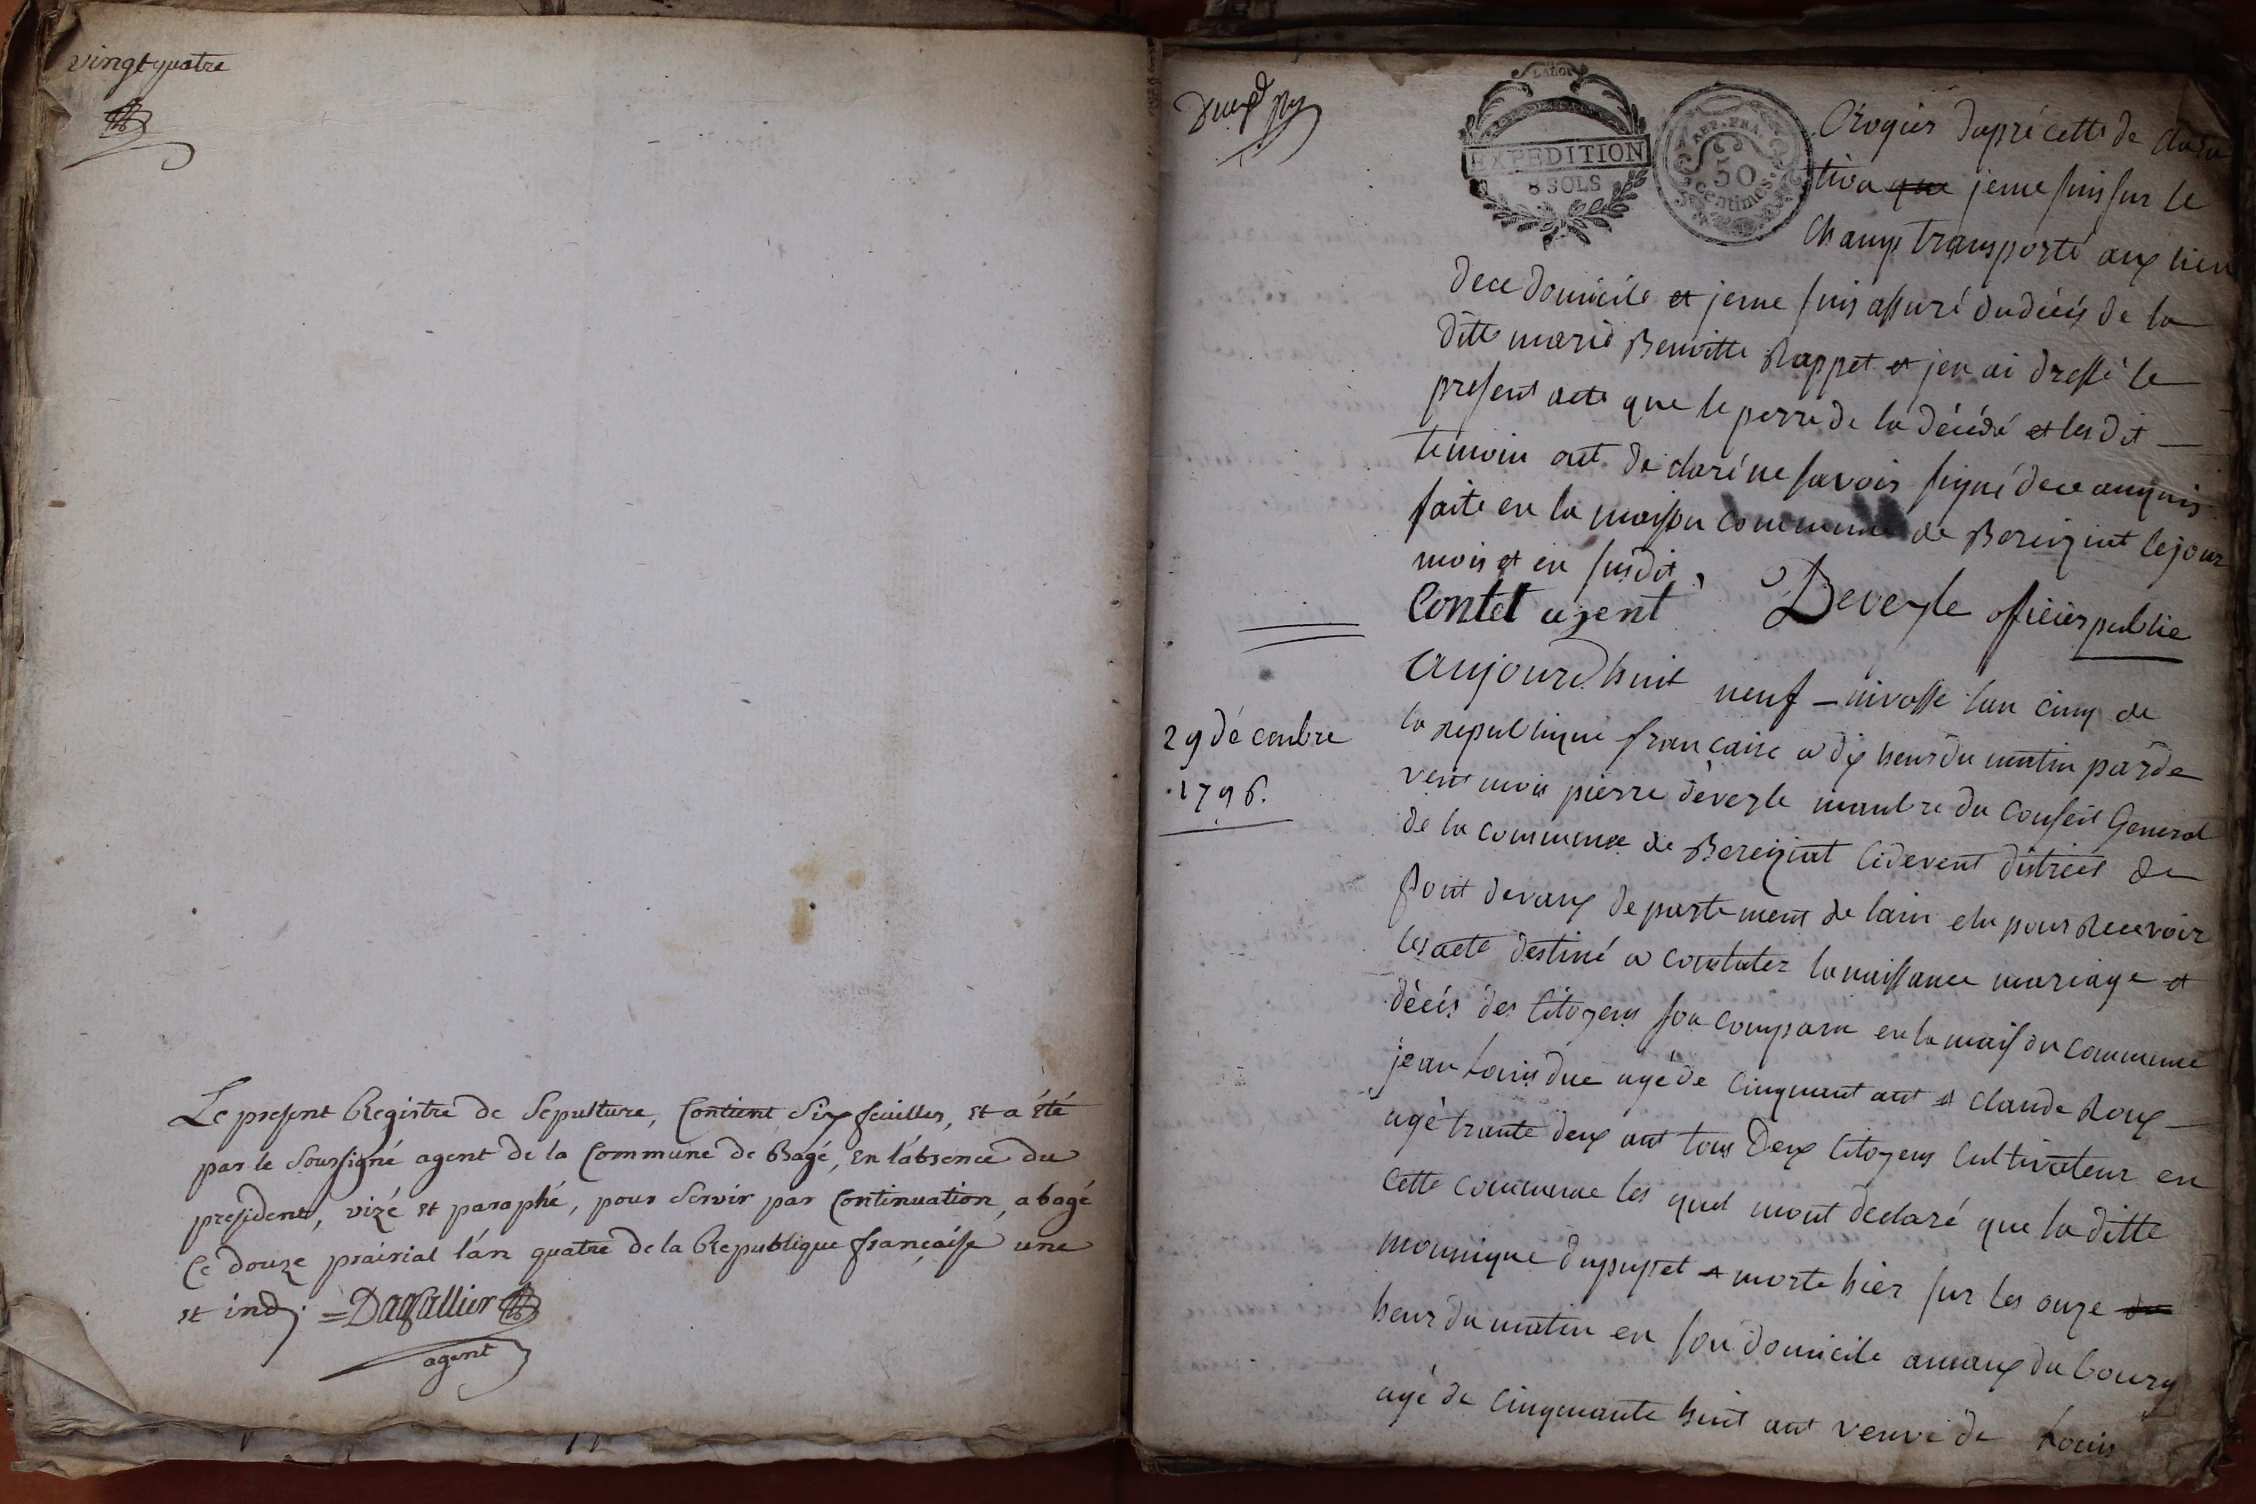 vingt quatre
Le present Registre de Sepulture, Contient Six feuilles, et a été
par le Soussigné agent de la Commune de Bagé, en l'absence du
president, vizé et paraphé, pour Servir par Continuation, a bagé
Ce douze prairial l'an quatre de la Republique française une
et ind. = Dagallier
agent
LABOR
EXPEDITION
8 SOLS
REP. FRA.
50
centimes.
Croguès daprè cette de clara
tion que jeme suis sur le
Champ transporté aux lieu
dece domicile et jeme suis assuré du décés de la
ditte marie Benoitte Rappet et jen ai dressé le
present acte que le perre de la décédé et les dit
temoin ont de claré ne savoir signé dece enquis
faite en la maison commune de Bereiziat le jour
mois et en susdit
Contet agent Deveyle officier public
29 décenbre
1796.
aujourdhuit neuf nivosse lan cinq de
la republique française a dix heur du matin parde
vent moi pierre deveyle manbre du Conseil General
de la commune de Bereiziat cidevent district de
pont devaux departement de lain elu pour Recevoir
les acte destiné a constater la naissance mariage et
décés des Citoyens son conparu en la maison commune
jean Louis duc agé de Cinquant ant et claude Roux
agé trante deux ant tous Deux Citoyens cultivateur en
cette commune les quel mont declaré que la ditte
mounique dupuyet et morte hier sur les onze du
heur du matin en son domicile amaux du bourg
agé de cinquante huit ant veuve de Louis